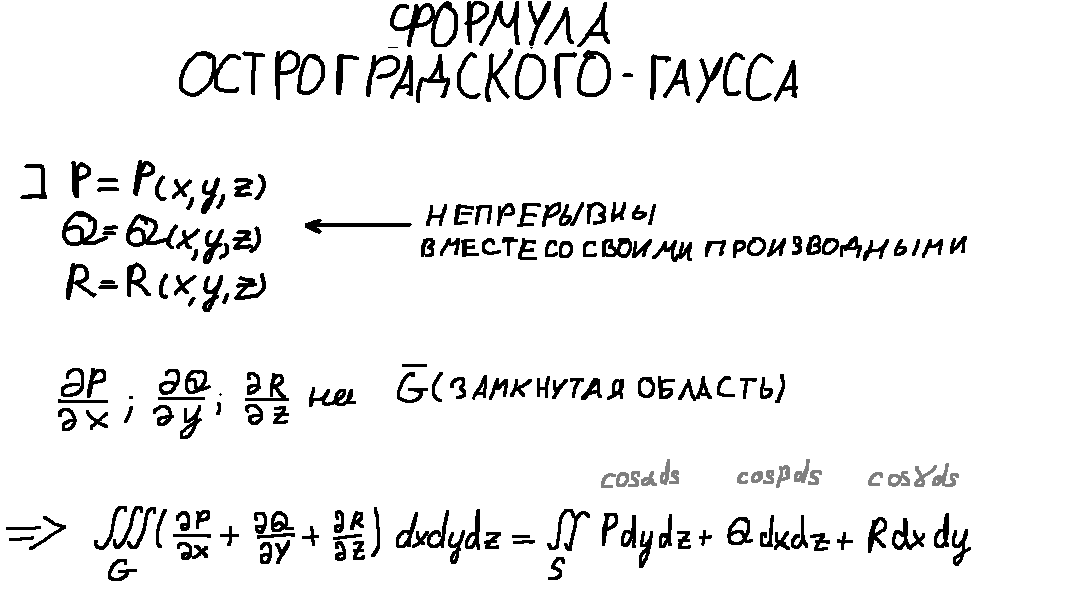 ФОРМУЛА
ОСТРОГРАДСКОГО-ГАУССА
] P = P(x,y,z)
Q = Q(x,y,z)
R = R(x,y,z)
← НЕПРЕРЫВНЫ
ВМЕСТЕ СО СВОИМИ ПРОИЗВОДНЫМИ
∂P/∂x ; ∂Q/∂y ; ∂R/∂z на G̅ (ЗАМКНУТАЯ ОБЛАСТЬ)
cosαds cosβds cosγds
=> ∭_G (∂P/∂x + ∂Q/∂y + ∂R/∂z) dxdydz = ∬_S Pdydz + Qdxdz + Rdxdy